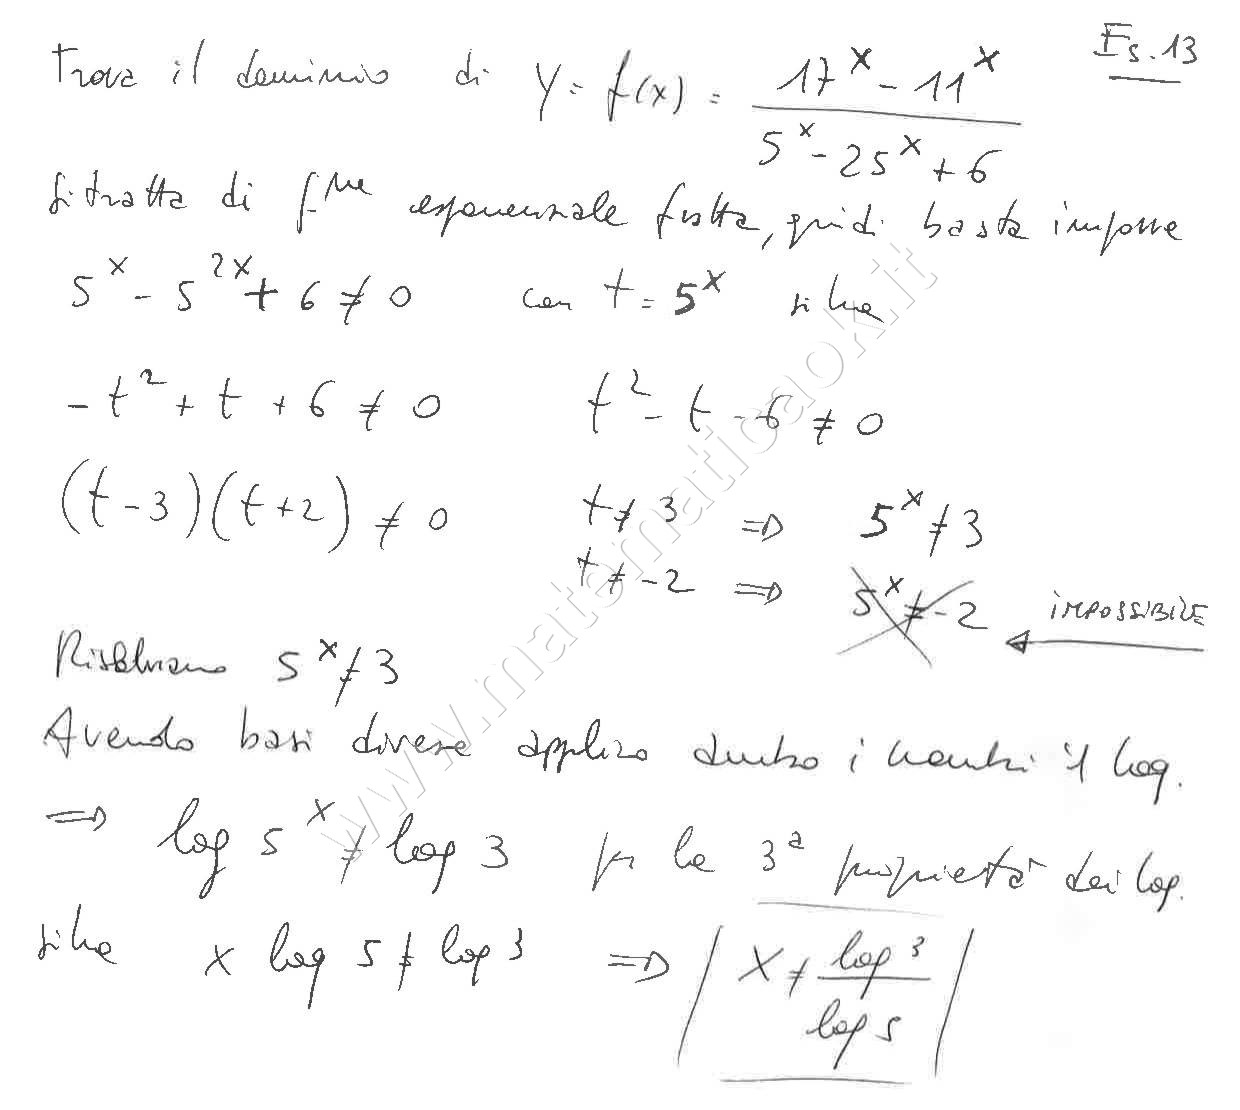 Es. 13
Trova il dominio di y = f(x) = (17^x - 11^x) / (5^x - 25^x + 6)
Si tratta di f^ne esponenziale fratta, quindi basta imporre
5^x - 5^2x + 6 ≠ 0 con t = 5^x si ha
-t² + t + 6 ≠ 0 t² - t - 6 ≠ 0
(t-3)(t+2) ≠ 0 t ≠ 3 ⇒ 5^x ≠ 3
t ≠ -2 ⇒ 5^x ≠ -2 IMPOSSIBILE
Risolviamo 5^x ≠ 3
Avendo basi diverse applico ambo i membri il log.
⇒ log 5^x ≠ log 3 per la 3ª proprietà dei log.
si ha x log 5 ≠ log 3 ⇒ x ≠ log 3 / log 5
www.matematicaok.it